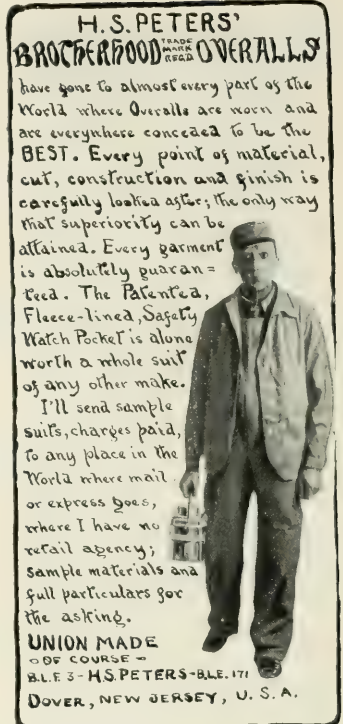 H.S. PETERS'
BROTHERHOOD TRADE MARK REG'D OVERALLS
have gone to almost every part of the
World where Overalls are worn and
are everywhere conceded to be the
BEST. Every point of material,
cut, construction and finish is
carefully looked after; the only way
that superiority can be
attained. Every garment
is absolutely guaran=
teed. The Patented,
Fleece-lined, Safety
Watch Pocket is alone
worth a whole suit
of any other make.
I'll send sample
suits, charges paid,
to any place in the
World where mail
or express goes,
where I have no
retail agency;
sample materials and
full particulars for
the asking.
UNION MADE
- OF COURSE -
B.L.F. 3 - H.S. PETERS - B.L.E. 171
DOVER, NEW JERSEY, U.S.A.